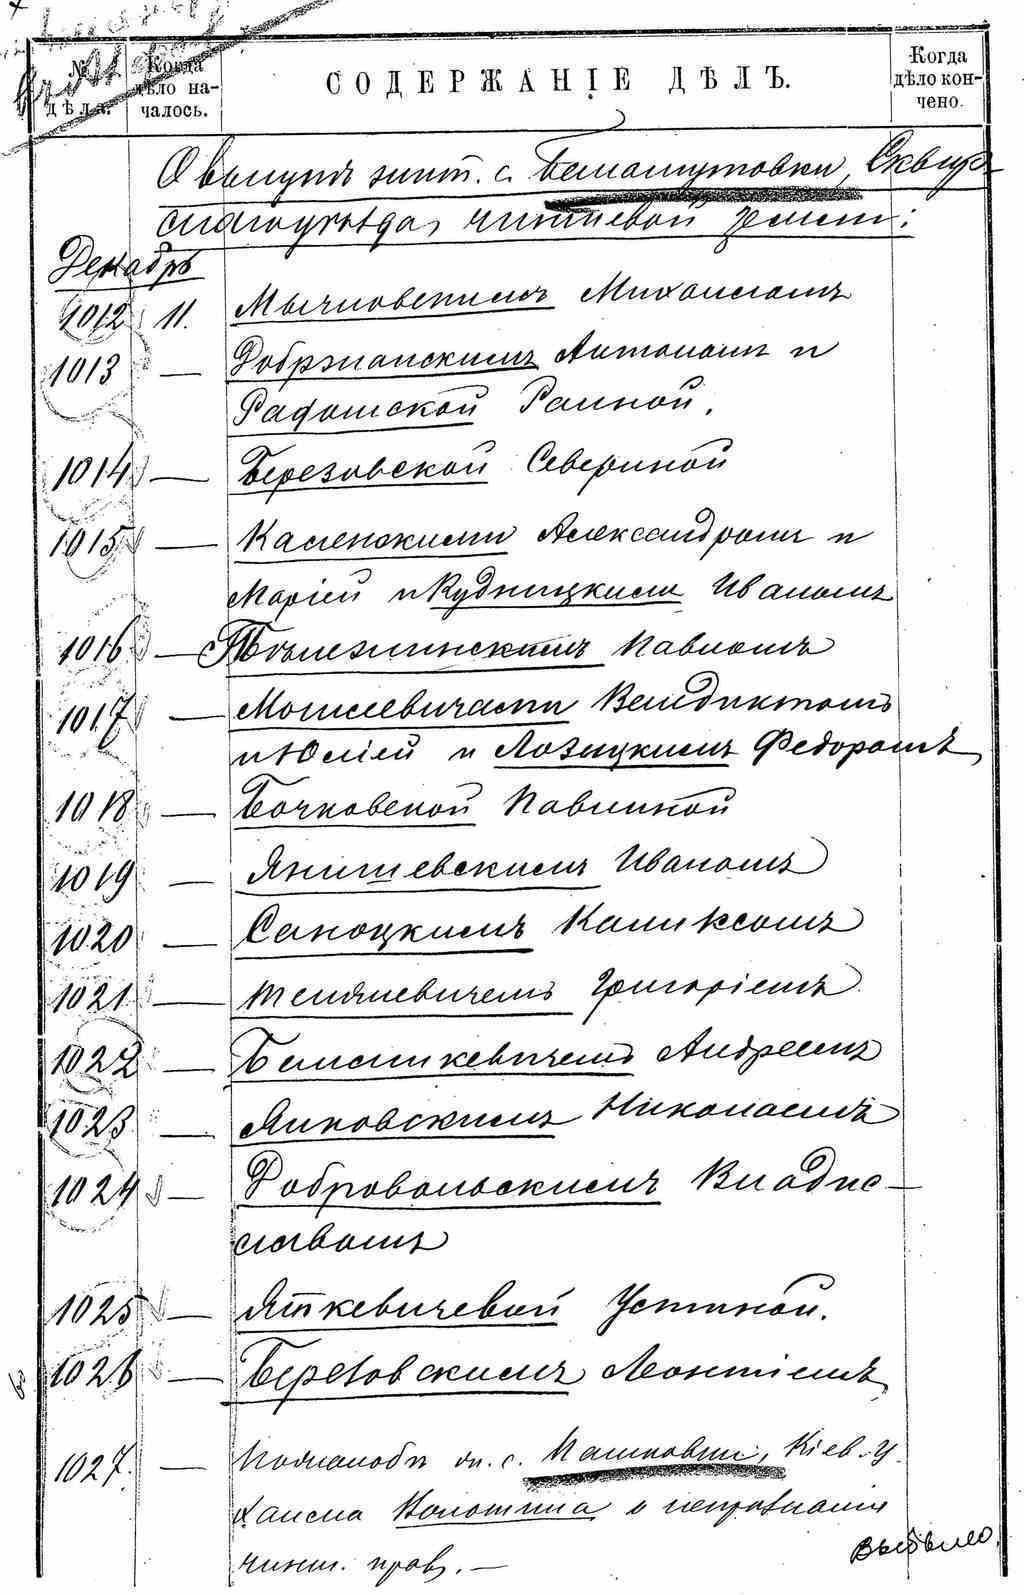 № дѣла.
Когда дѣло началось.
СОДЕРЖАНІЕ ДѢЛЪ.
Когда дѣло кончено.
О выкупѣ жит. с. Сквир-
скаго уѣзда, чиншевой земли:
Декабрь
1012 11. Михаиломъ
1013 — Добржанскимъ Антономъ и
Радомской
1014 — Березовской Севериной
1015 — Каменскими Александромъ и
Маріей и Рудницкимъ Иваномъ
1016 — Павломъ
1017 — Моисеевичами Венедиктомъ
и Юліей и Лозицкимъ Федоромъ
1018 — Бочковской Павлиной
1019 — Янишевскимъ Иваномъ
1020 — Саноцкимъ Каликсомъ
1021 — Григоріемъ
1022 — Андреемъ
1023 — Янковскимъ Николаемъ
1024 — Добровольскимъ Владис-
лавомъ
1025 — Яткевичевой Устиной.
1026 — Березовскимъ Леонтіемъ
1027. — По жалобѣ жит. с. Пашковки, Кіев. у.
о непризнаніи
чинш. правъ. —
Выбыло.